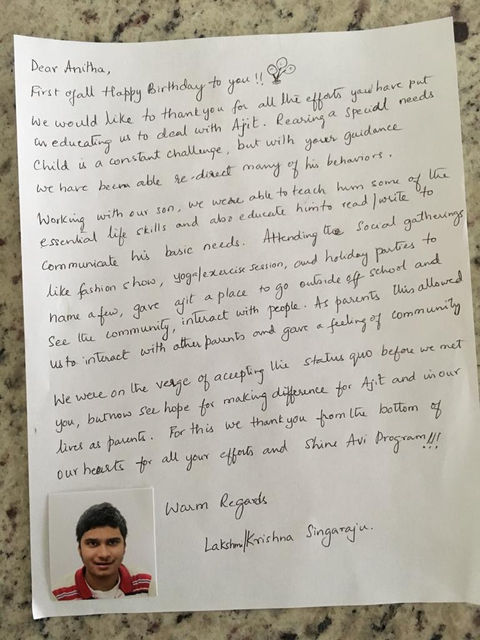 Dear Anitha,
First of all Happy Birthday to you!!
We would like to thank you for all the efforts you have put
in educating us to deal with Ajit. Rearing a special needs
Child is a constant challenge, but with your guidance
we have been able re-direct many of his behaviors.
Working with our son, we were able to teach him some of the
essential life skills and also educate him to read/write to
communicate his basic needs. Attending the Social gatherings
like fashion show, yoga/exercise session, and holiday parties to
name a few, gave ajit a place to go outside of school and
see the community, interact with people. As parents this allowed
us to interact with other parents and gave a feeling of community
We were on the verge of accepting the status quo before we met
you, but now see hope for making difference for Ajit and in our
lives as parents. For this we thank you from the bottom of
our hearts for all your efforts and Shine Avi Program!!!
Warm Regards
Lakshmi/Krishna Singaraju.